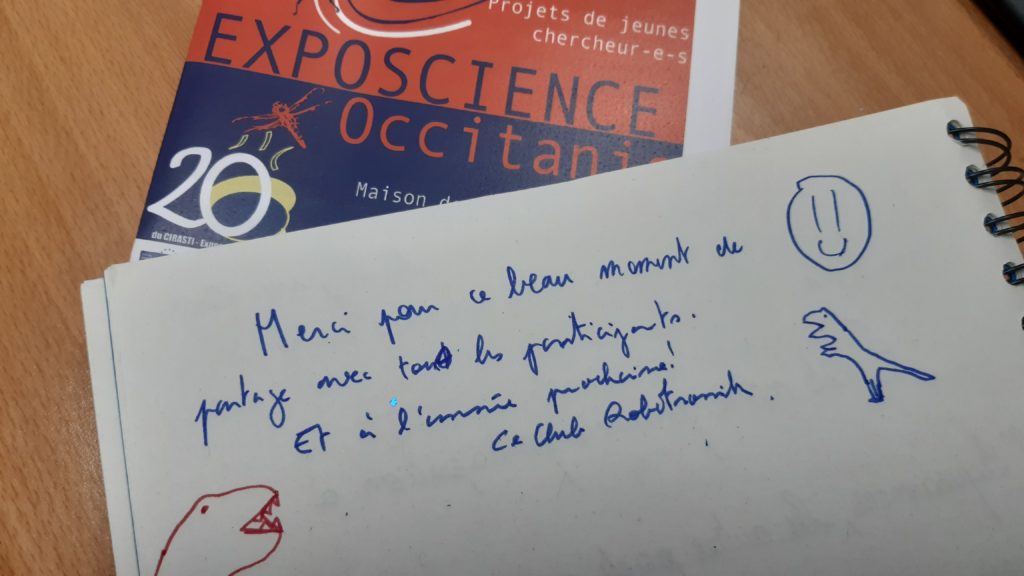 Projets de jeunes
chercheur-e-s
EXPOSCIENCE
Occitanie
20
Maison d
du CIRASTI - Expo
Merci pour ce beau moment de
partage avec tous les participants.
Et à l'année prochaine!
Le Club